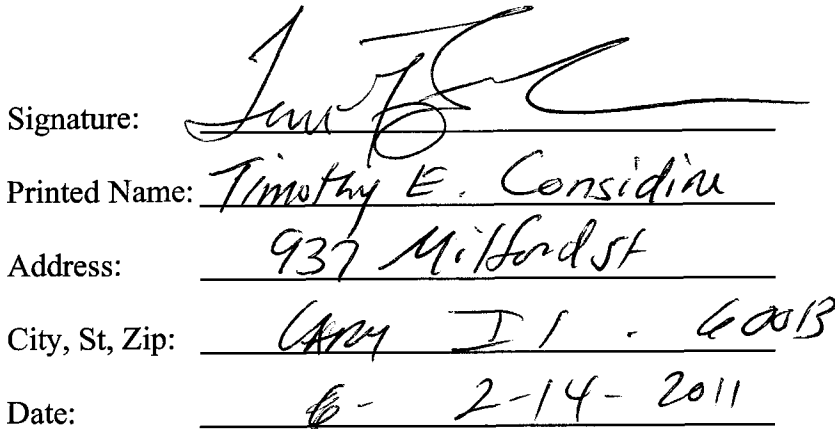 Signature:
Printed Name: Timothy E. Considine
Address: 937 Milford St
City, St, Zip: CARY Il. 60013
Date: 2-14-2011